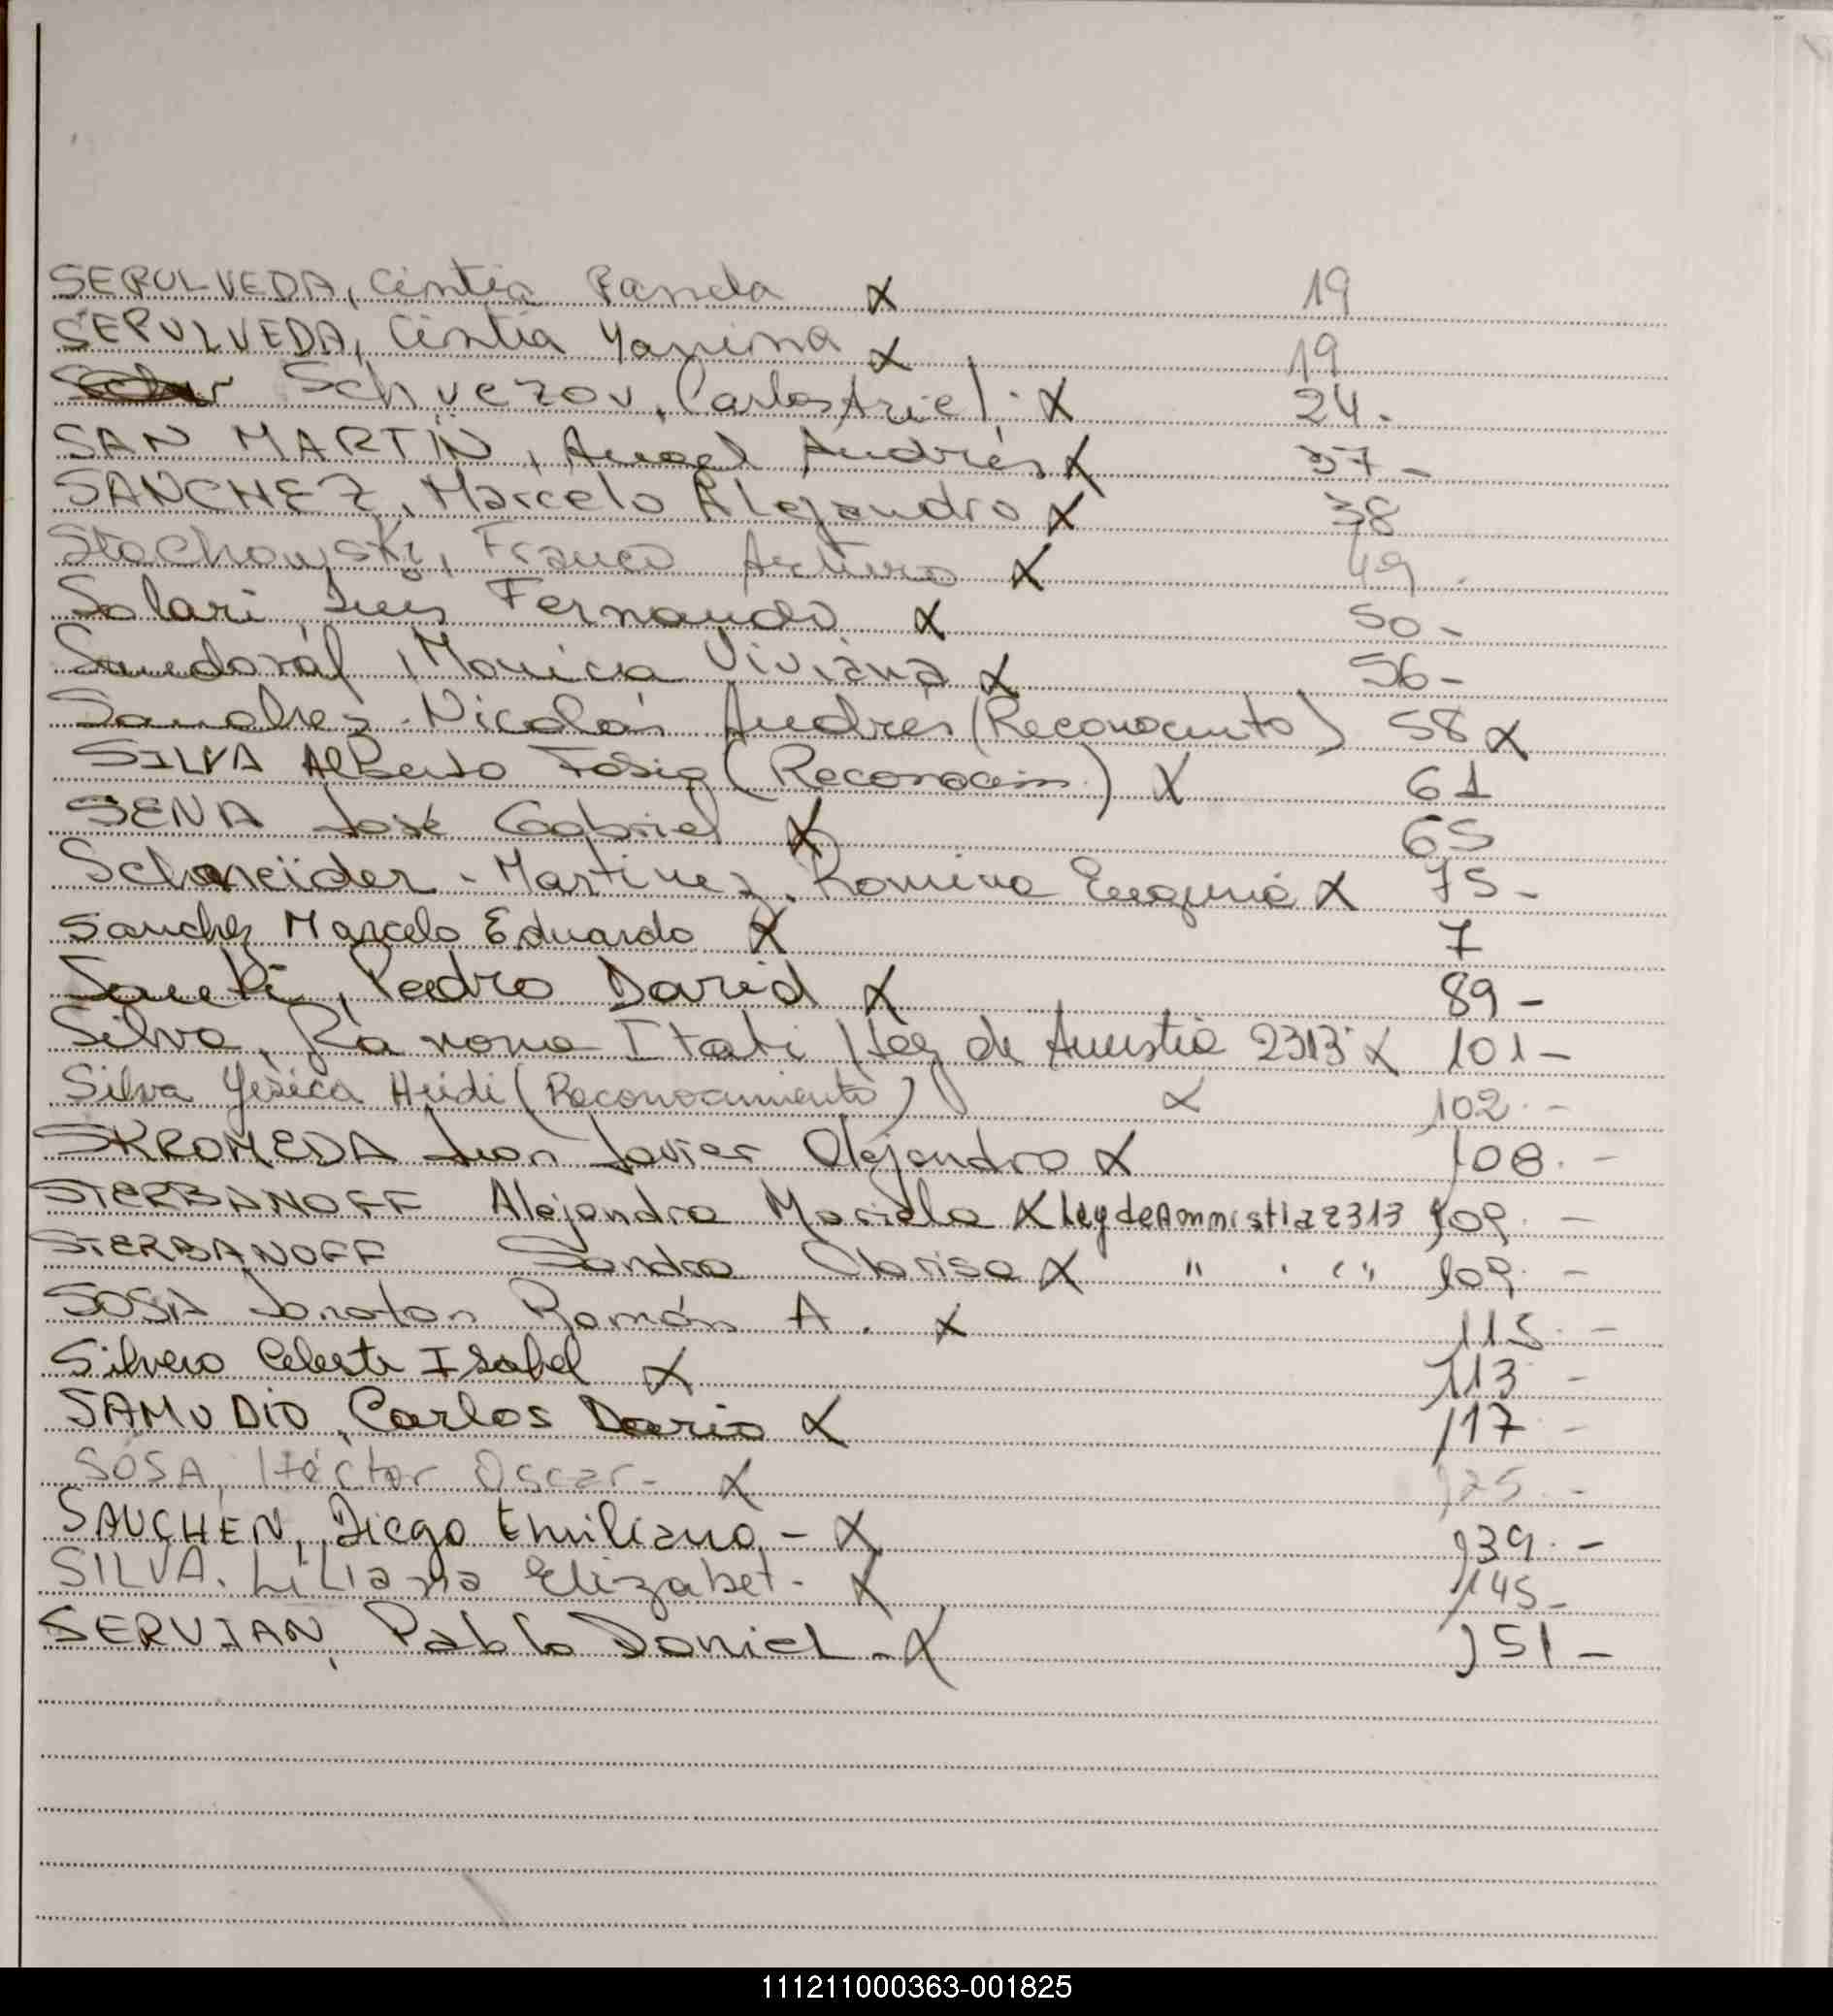 SEPULVEDA, Cintia Pamela X 19
SEPULVEDA, Cintia Yanina X 19
Schvezov, Carlos Ariel. X 24.
SAN MARTÍN, Angel Andrés X 37-
SANCHEZ, Marcelo Alejandro X 38
Stachowski, Franco Arturo X 49.
Solari, Luis Fernando X 50-
Sandoval, Monica Viviana X 56-
Nicolás Andrés (Reconocimto) 58 X
SILVA Alberto (Reconocim.) X 61
SENA José Gabriel X 65
Schneider - Martinez, Romina Eugenia X 75-
Sanchez Marcelo Eduardo X 7
Pedro David X 89-
Silva, Ramona Itati / Ley de Amistia 2313 X 101-
Silva Yesica Heidi (Reconocimiento) X 102.-
SKROMEDA Juan Javier Alejandro X 108.-
STERBANOFF Alejandra Mariela X ley de Ammistia 2313 109.-
STERBANOFF Sandra Clarisa X " " " 109.-
SOSA Jonatan Ramón A. X 115.-
Silvero Celeste Isabel X 113-
SAMUDIO, Carlos Dario X 117-
SOSA, Héctor Oscar- X 125.-
SAUCHEN, Diego Emiliano.- X 139.-
SILVA, Liliana Elizabet. X 145-
SERVIAN, Pablo Daniel - X 151-
111211000363-001825